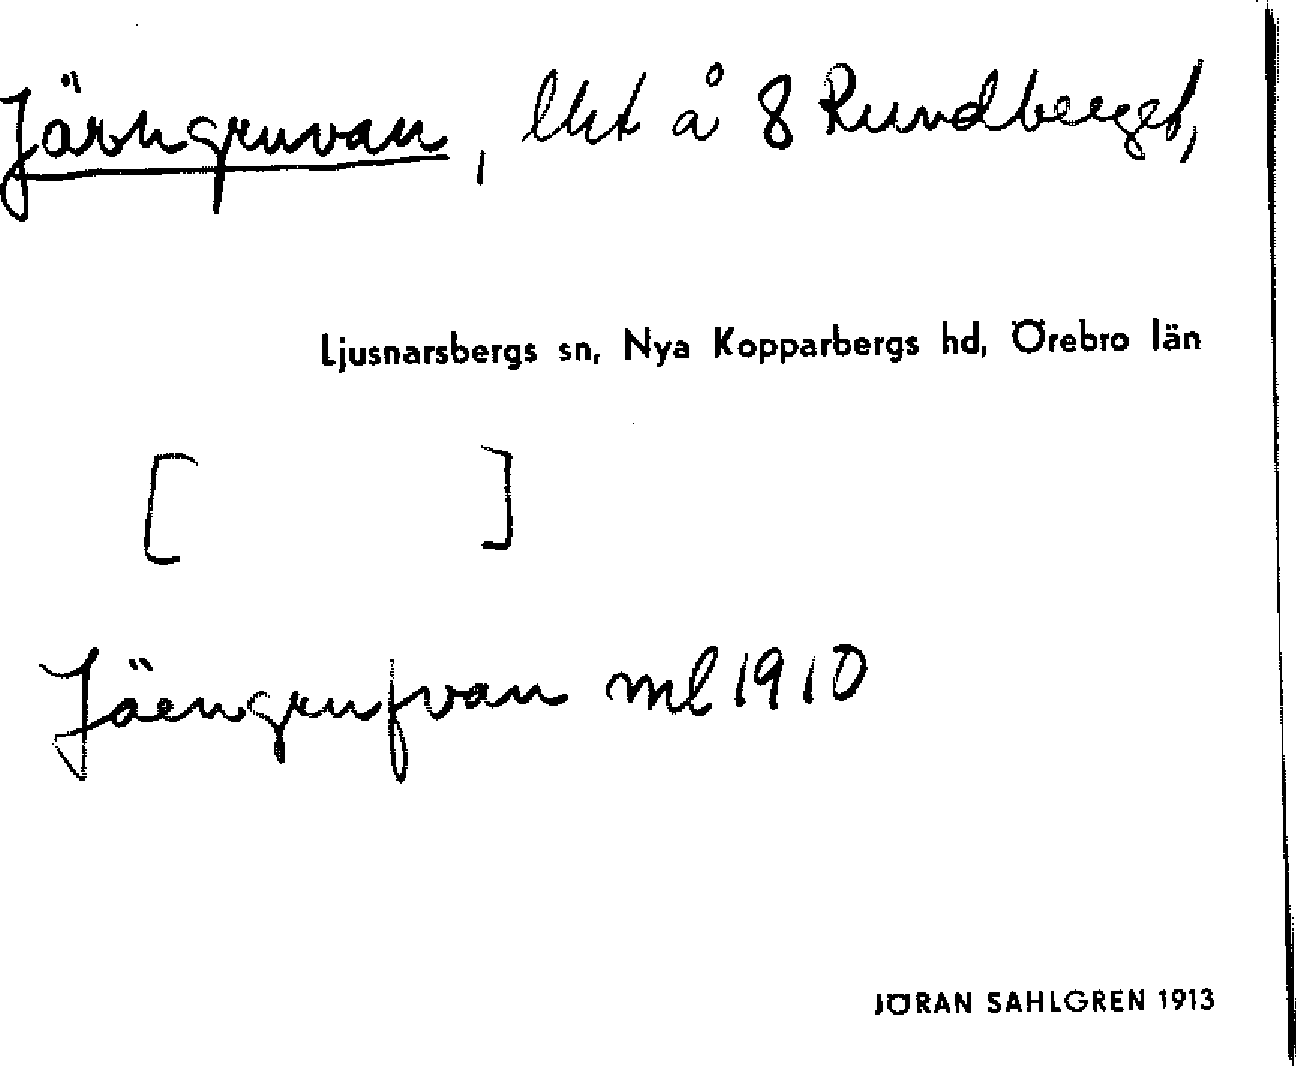 Järngruvan, lht å 8 Rundberget,
Ljusnarsbergs sn, Nya Kopparbergs hd, Örebro län
[ ]
Järngrufvan ml 1910
JÖRAN SAHLGREN 1913